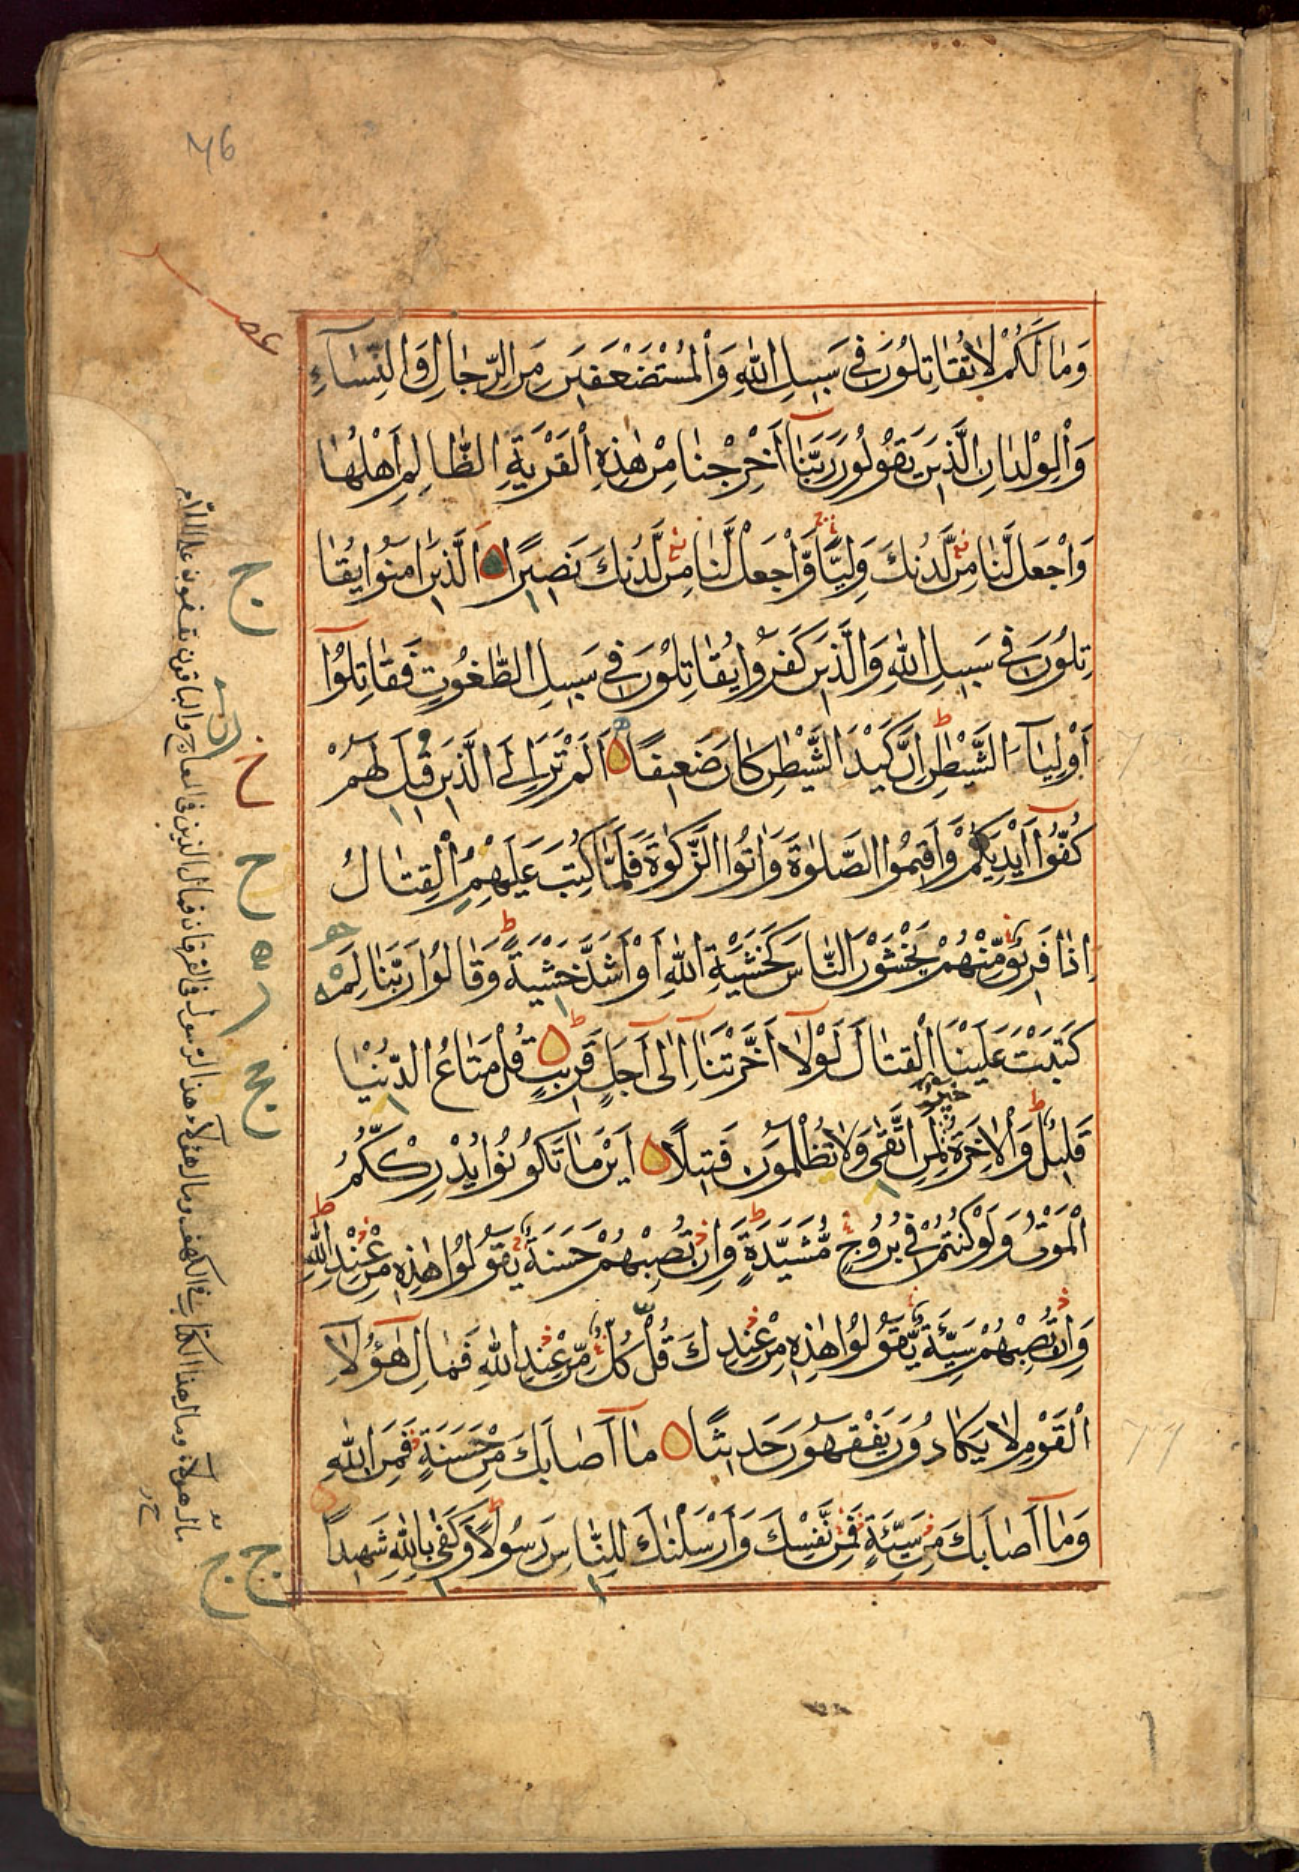 76
عصر
وَمَا لَكُمْ لَا تُقَاتِلُونَ فِي سَبِيلِ اللّٰهِ وَالْمُسْتَضْعَفِينَ مِنَ الرِّجَالِ وَالنِّسَآءِ
وَالْوِلْدَانِ الَّذِينَ يَقُولُونَ رَبَّنَآ أَخْرِجْنَا مِنْ هٰذِهِ الْقَرْيَةِ الظَّالِمِ أَهْلُهَا
وَاجْعَل لَّنَا مِن لَّدُنكَ وَلِيًّا وَّاجْعَل لَّنَا مِن لَّدُنكَ نَصِيرًا الَّذِينَ اٰمَنُوا يُقَا
تِلُونَ فِي سَبِيلِ اللّٰهِ وَالَّذِينَ كَفَرُوا يُقَاتِلُونَ فِي سَبِيلِ الطَّغُوتِ فَقَاتِلُوٓا
أَوْلِيَآءَ الشَّيْطٰنِ إِنَّ كَيْدَ الشَّيْطٰنِ كَانَ ضَعِيفًا أَلَمْ تَرَ إِلَى الَّذِينَ قِيلَ لَهُمْ
كُفُّوٓا أَيْدِيَكُمْ وَأَقِيمُوا الصَّلٰوةَ وَاٰتُوا الزَّكٰوةَ فَلَمَّا كُتِبَ عَلَيْهِمُ الْقِتَالُ
إِذَا فَرِيقٌ مِّنْهُمْ يَخْشَوْنَ النَّاسَ كَخَشْيَةِ اللّٰهِ أَوْ أَشَدَّ خَشْيَةً وَقَالُوا رَبَّنَا لِمَ
كَتَبْتَ عَلَيْنَا الْقِتَالَ لَوْلَآ أَخَّرْتَنَآ إِلٰٓى أَجَلٍ قَرِيبٍ قُلْ مَتَاعُ الدُّنْيَا
قَلِيلٌ وَالْاٰخِرَةُ خَيْرٌ لِّمَنِ اتَّقٰى وَلَا تُظْلَمُونَ فَتِيلًا أَيْنَ مَا تَكُونُوا يُدْرِككُّمُ
الْمَوْتُ وَلَوْ كُنتُمْ فِي بُرُوجٍ مُّشَيَّدَةٍ وَإِن تُصِبْهُمْ حَسَنَةٌ يَقُولُوا هٰذِهِ مِنْ عِندِ اللّٰهِ
وَإِن تُصِبْهُمْ سَيِّئَةٌ يَّقُولُوا هٰذِهِ مِنْ عِندِكَ قُلْ كُلٌّ مِّنْ عِندِ اللّٰهِ فَمَالِ هٰٓؤُلَآ
الْقَوْمِ لَا يَكَادُونَ يَفْقَهُونَ حَدِيثًا مَآ أَصَابَكَ مِنْ حَسَنَةٍ فَمِنَ اللّٰهِ
وَمَآ أَصَابَكَ مِن سَيِّئَةٍ فَمِن نَّفْسِكَ وَأَرْسَلْنٰكَ لِلنَّاسِ رَسُولًا وَكَفٰى بِاللّٰهِ شَهِيدًا